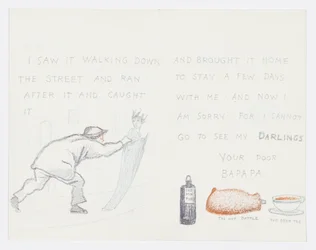 I SAW IT WALKING DOWN
THE STREET AND RAN
AFTER IT AND CAUGHT
IT
AND BROUGHT IT HOME
TO STAY A FEW DAYS
WITH ME AND NOW I
AM SORRY FOR I CANNOT
GO TO SEE MY DARLINGS
YOUR POOR
BAPAPA